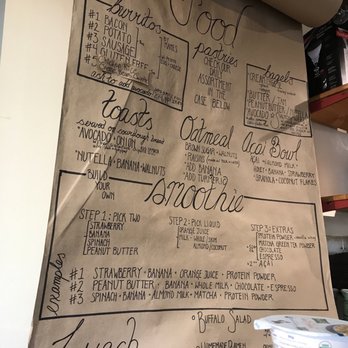 Food
burritos
#1 BACON
#2 POTATO
#3 SAUSAGE
#4 GLUTEN FREE
#5
pastries
CHECK OUR
DAILY
ASSORTMENT
IN THE
CASE BELOW
bagels
BUTTER / JAM
PEANUT BUTTER
toasts
served on sourdough bread
*AVOCADO
*NUTELLA • BANANA • WALNUTS
BUILD
YOUR
OWN
Oatmeal
BROWN SUGAR • WALNUTS
• RAISINS
*ADD BANANA
*ADD TURMERIC
Acai Bowl
ACAI • ALMOND MILK •
HONEY • BANANA • STRAWBERRY
• GRANOLA • COCONUT FLAKES
smoothie
STEP 1: PICK TWO
STRAWBERRY
BANANA
SPINACH
PEANUT BUTTER
STEP 2: PICK LIQUID
ORANGE JUICE
MILK - WHOLE, SKIM
ALMOND, COCONUT
STEP 3: EXTRAS
PROTEIN POWDER
MATCHA GREEN TEA POWDER
CHOCOLATE
ESPRESSO
ACAI
examples
#1 STRAWBERRY • BANANA • ORANGE JUICE • PROTEIN POWDER
#2 PEANUT BUTTER • BANANA • WHOLE MILK • CHOCOLATE • ESPRESSO
#3 SPINACH • BANANA • ALMOND MILK • MATCHA • PROTEIN POWDER
Lunch
• BUFFALO SALAD